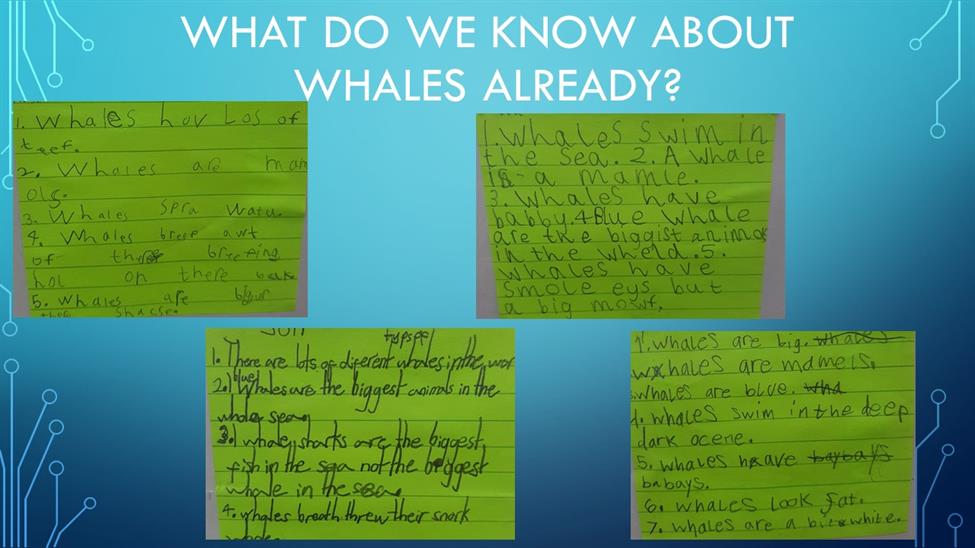 WHAT DO WE KNOW ABOUT
WHALES ALREADY?
1. Whales hov Los of
teef.
2. Whales are mam
olg.
3. Whales spra watu.
4. Whales breee awt
of breeping
hol on there
5. whales are
1. Whales swim in
the sea. 2. A whale
is a mamle.
3. Whales have
babby. 4 Blue whale
are the biggist animals
in the wheld. 5.
whales have
smole eys but
a big mowf.
1. There are lots of diferent whales in the wor
blue
2. Whales are the biggest animals in the
whole sea.
3. whale sharks are the biggest
fish in the sea not the biggest
whale in the sea.
4. whales breath threw their snork
1. whales are big. whales
whales are mamels.
3. whales are blue. wha
4. whales swim in the deep
dark ocene.
5. whales have baybays
babays.
6. whales look fat.
7. whales are a bit white.